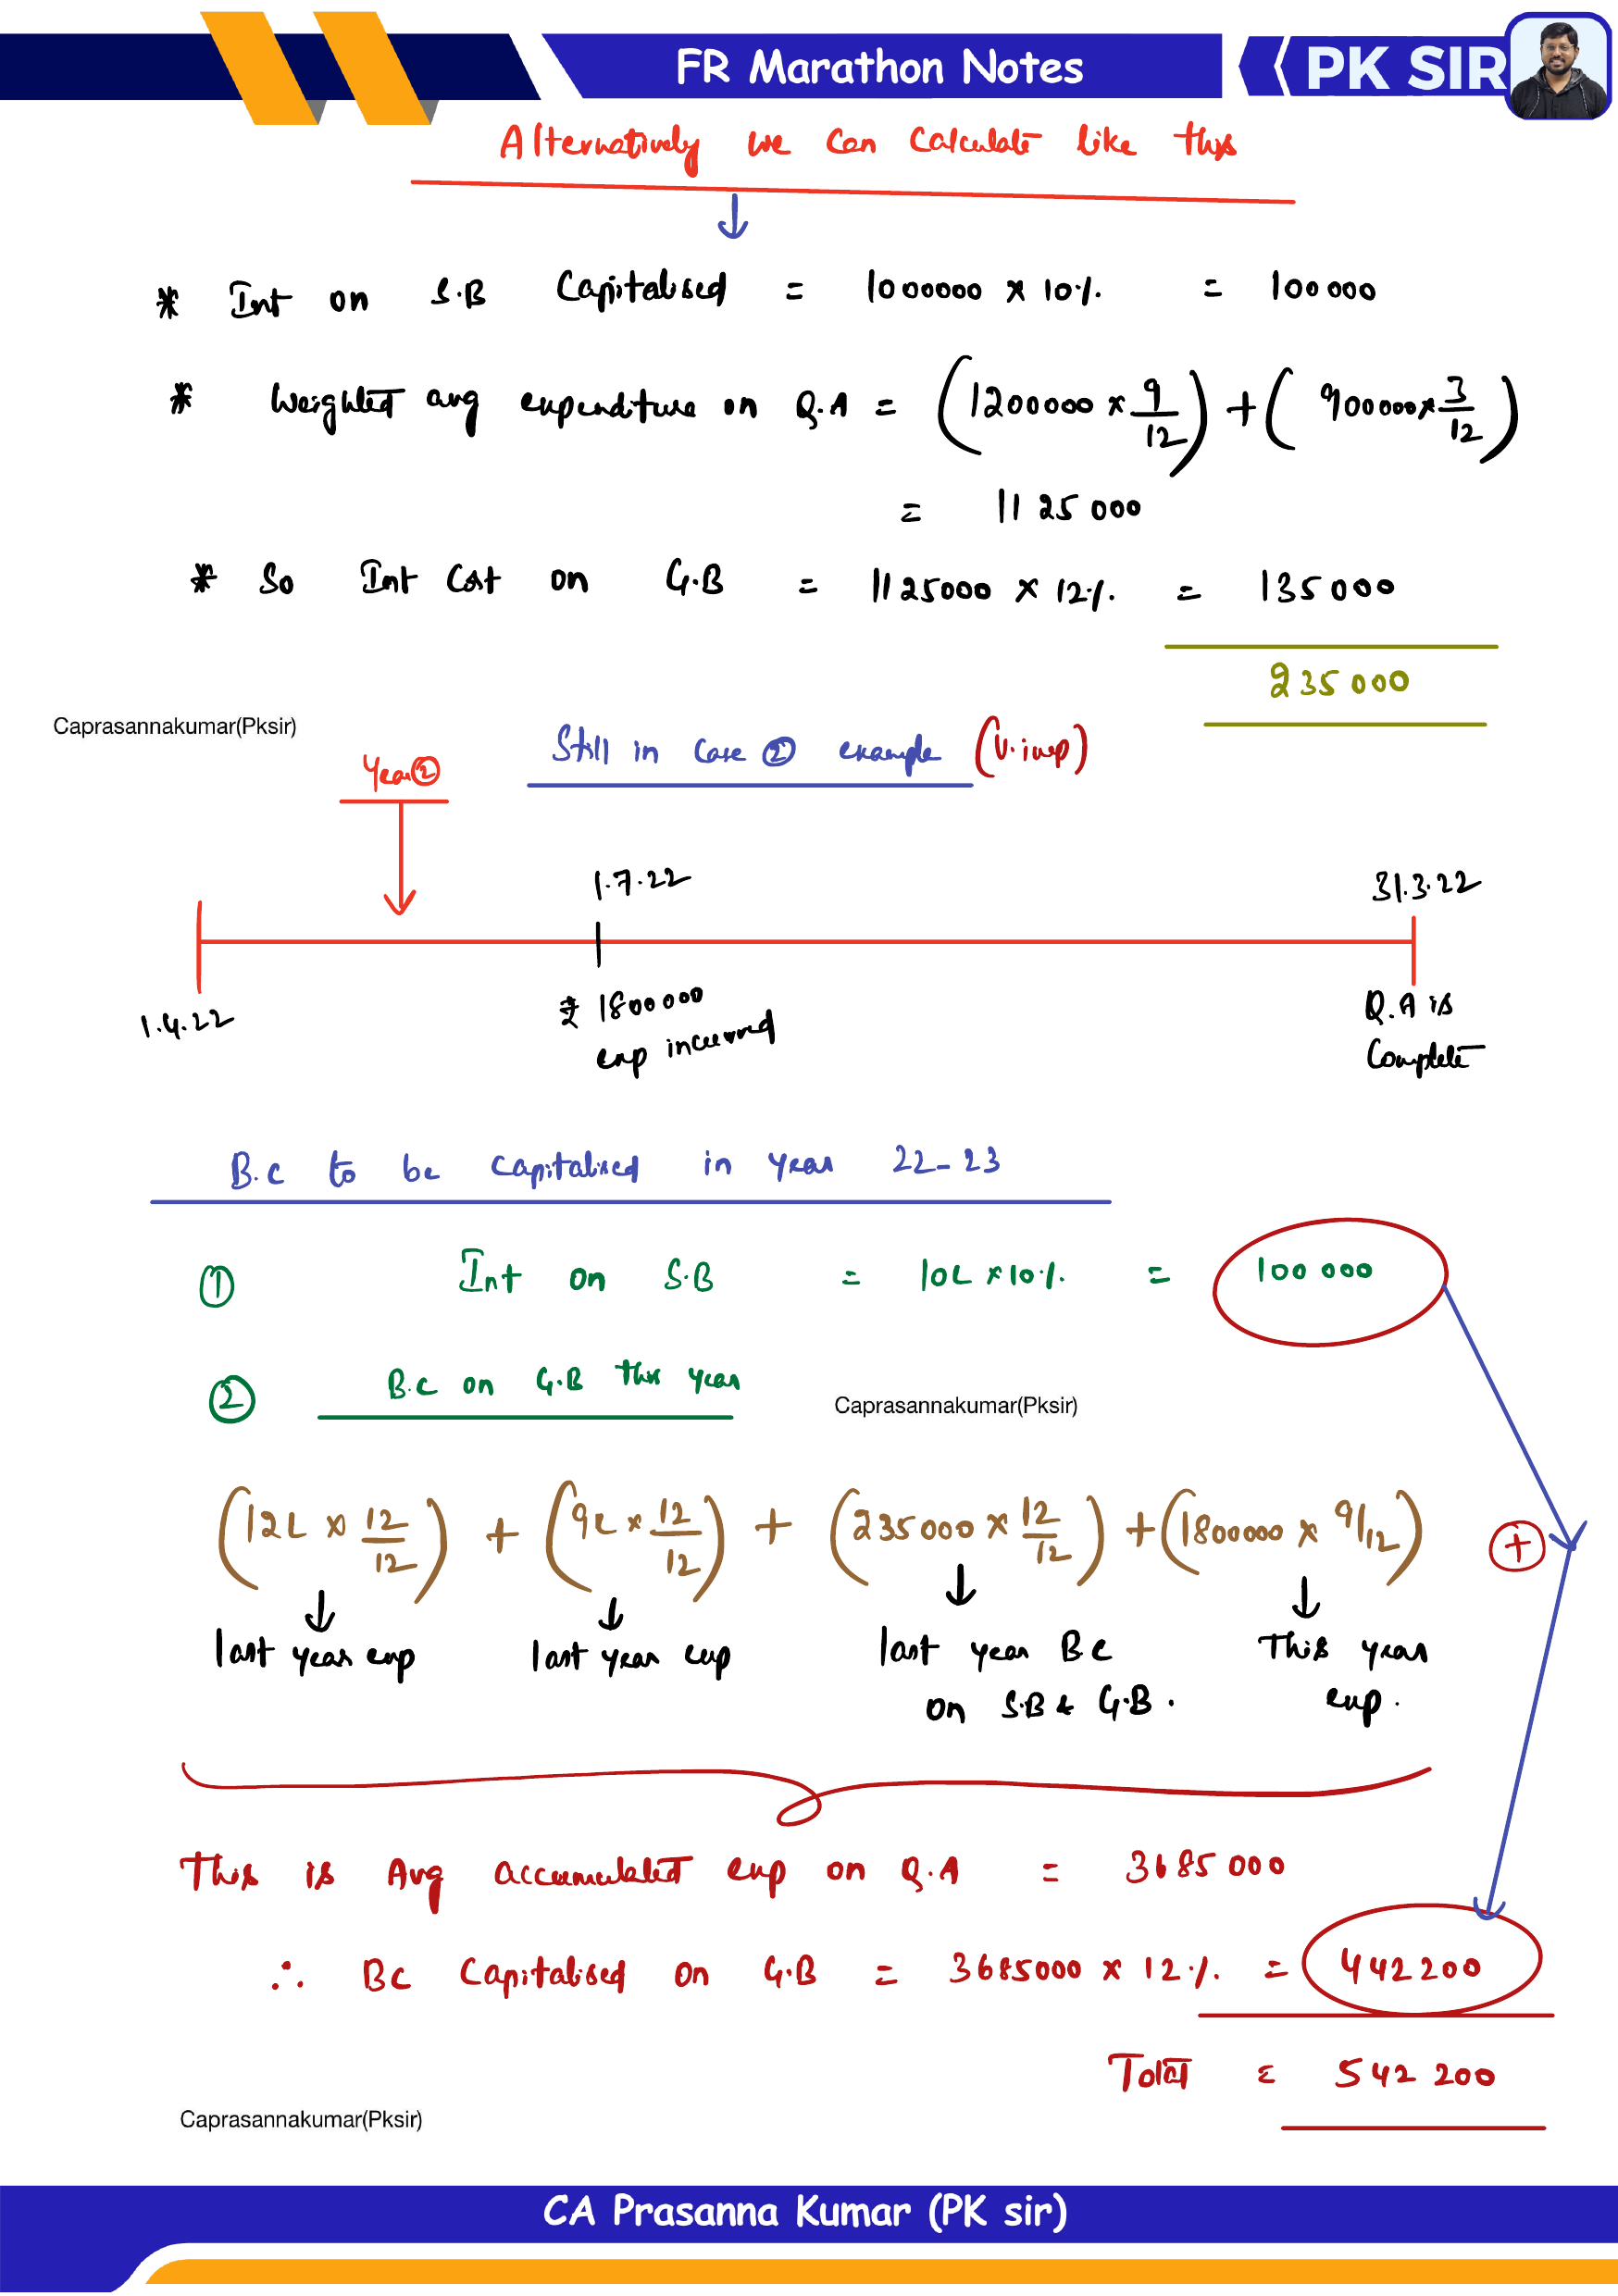 FR Marathon Notes
PK SIR
Alternatively we can calculate like this
* Int on S.B Capitalised = 1000000 x 10% = 100000
* Weighted avg expenditure on Q.A = (1200000 x 9/12) + (900000 x 3/12)
= 1125000
* So Int Cost on G.B = 1125000 x 12% = 135000
235000
Caprasannakumar(Pksir)
Still in Case ② example (V.imp)
Year②
1.7.22
31.3.22
1.4.22
₹ 1800000
exp incurred
Q.A is
Complete
B.C to be capitalised in year 22-23
① Int on S.B = 10L x 10% = 100 000
② B.C on G.B this year
Caprasannakumar(Pksir)
(12L x 12/12) + (9L x 12/12) + (235000 x 12/12) + (1800000 x 9/12)
+
last year exp
last year exp
last year B C
on S.B & G.B.
This year
exp.
This is Avg accumulated exp on Q.A = 3685000
∴ BC Capitalised on G.B = 3685000 x 12% = 442200
Total = 542200
Caprasannakumar(Pksir)
CA Prasanna Kumar (PK sir)